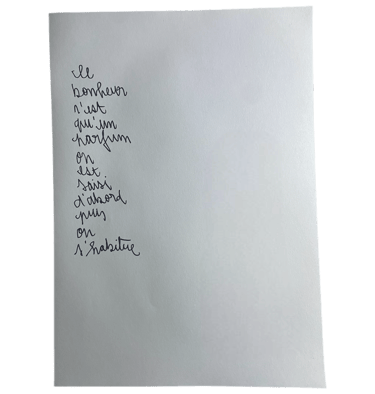 le
bonheur
n'est
qu'un
parfum
on
est
saisi
d'abord
puis
on
s'habitue